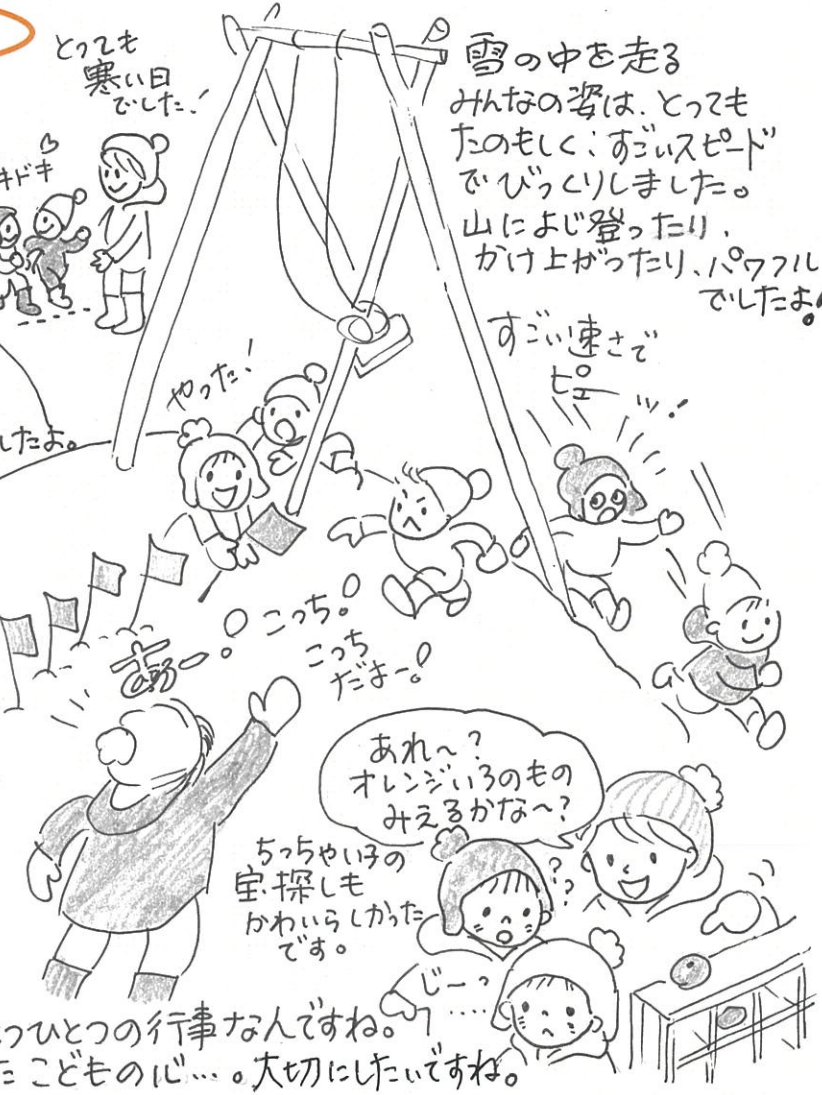 とっても
寒い日
でした!
キドキ
雪の中を走る
みんなの姿は、とっても
たのもしく、すごいスピード
でびっくりしました。
山によじ登ったり、
かけ上がったり、パワフル
でしたよ!
すごい速さで
ピューッ!
やった!
したよ。
あー!
こっち!
こっち
だよー!
あれ〜?
オレンジいろのもの
みえるかな〜?
ちっちゃい子の
宝探しも
かわいらしかった
です。
??
じ〜っ
……
つひとつの行事なんですね。
たこどもの心…。大切にしたいですね。